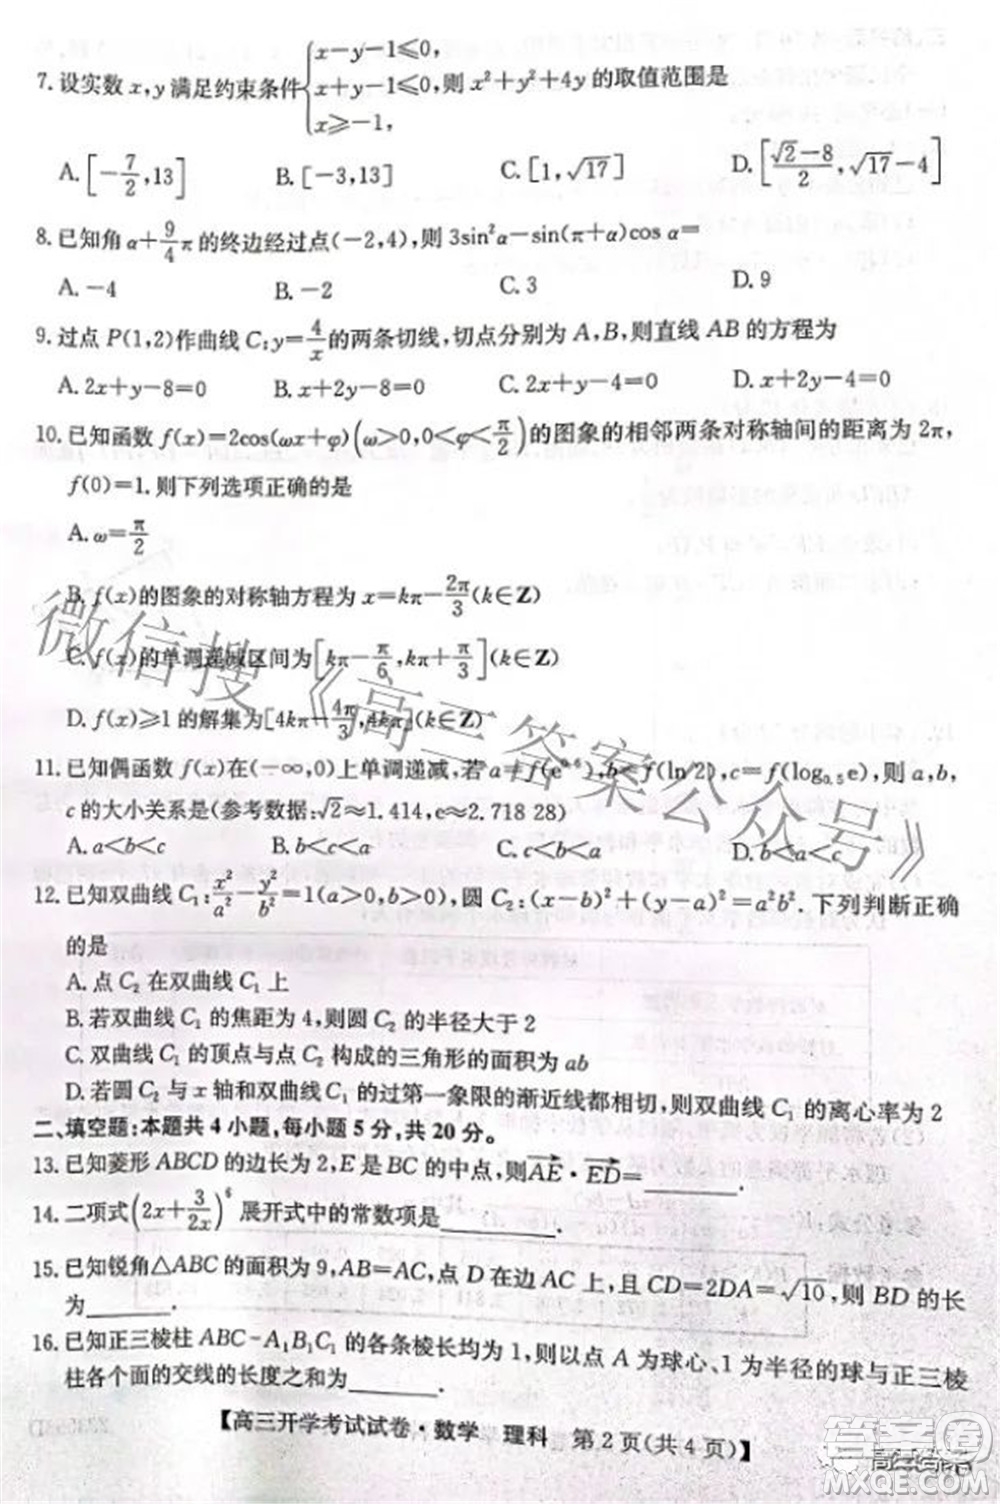 7. 设实数 x,y 满足约束条件 { x-y-1≤0, x+y-1≤0, x≥-1, 则 x²+y²+4y 的取值范围是
A. [-7/2,13] B. [-3,13] C. [1,√17] D. [(√2-8)/2,√17-4]
8. 已知角 α+9/4π 的终边经过点(-2,4),则 3sin²α-sin(π+α)cos α=
A. -4 B. -2 C. 3 D. 9
9. 过点 P(1,2)作曲线 C:y=4/x 的两条切线,切点分别为 A,B,则直线 AB 的方程为
A. 2x+y-8=0 B. x+2y-8=0 C. 2x+y-4=0 D. x+2y-4=0
10. 已知函数 f(x)=2cos(ωx+φ)(ω>0,0<φ<π/2)的图象的相邻两条对称轴间的距离为 2π,
f(0)=1.则下列选项正确的是
A. ω=π/2
B. f(x)的图象的对称轴方程为 x=kπ-2π/3(k∈Z)
C. f(x)的单调递减区间为[kπ-π/6,kπ+π/3](k∈Z)
D. f(x)≥1 的解集为[4kπ-4π/3,4kπ](k∈Z)
11. 已知偶函数 f(x)在(-∞,0)上单调递减,若 a=f( ),b=f(ln 2),c=f(log₀.₅e),则 a,b,
c 的大小关系是(参考数据:√2≈1.414,e≈2.718 28)
A. a<b<c B. b<c<a C. c<b<a D. b<a<c
12. 已知双曲线 C₁:x²/a²-y²/b²=1(a>0,b>0),圆 C₂:(x-b)²+(y-a)²=a²b². 下列判断正确
的是
A. 点 C₂ 在双曲线 C₁ 上
B. 若双曲线 C₁ 的焦距为 4,则圆 C₂ 的半径大于 2
C. 双曲线 C₁ 的顶点与点 C₂ 构成的三角形的面积为 ab
D. 若圆 C₂ 与 x 轴和双曲线 C₁ 的过第一象限的渐近线都相切,则双曲线 C₁ 的离心率为 2
二、填空题:本题共 4 小题,每小题 5 分,共 20 分。
13. 已知菱形 ABCD 的边长为 2,E 是 BC 的中点,则AE·ED=________.
14. 二项式(2x+3/2x)⁶ 展开式中的常数项是________.
15. 已知锐角△ABC 的面积为 9,AB=AC,点 D 在边 AC 上,且 CD=2DA=√10,则 BD 的长
为________.
16. 已知正三棱柱 ABC-A₁B₁C₁ 的各条棱长均为 1,则以点 A 为球心、1 为半径的球与正三棱
柱各个面的交线的长度之和为________.
【高三开学考试试卷·数学 理科 第 2 页(共 4 页)】
微信搜《高三答案公众号》
答案圈
MXQE.COM